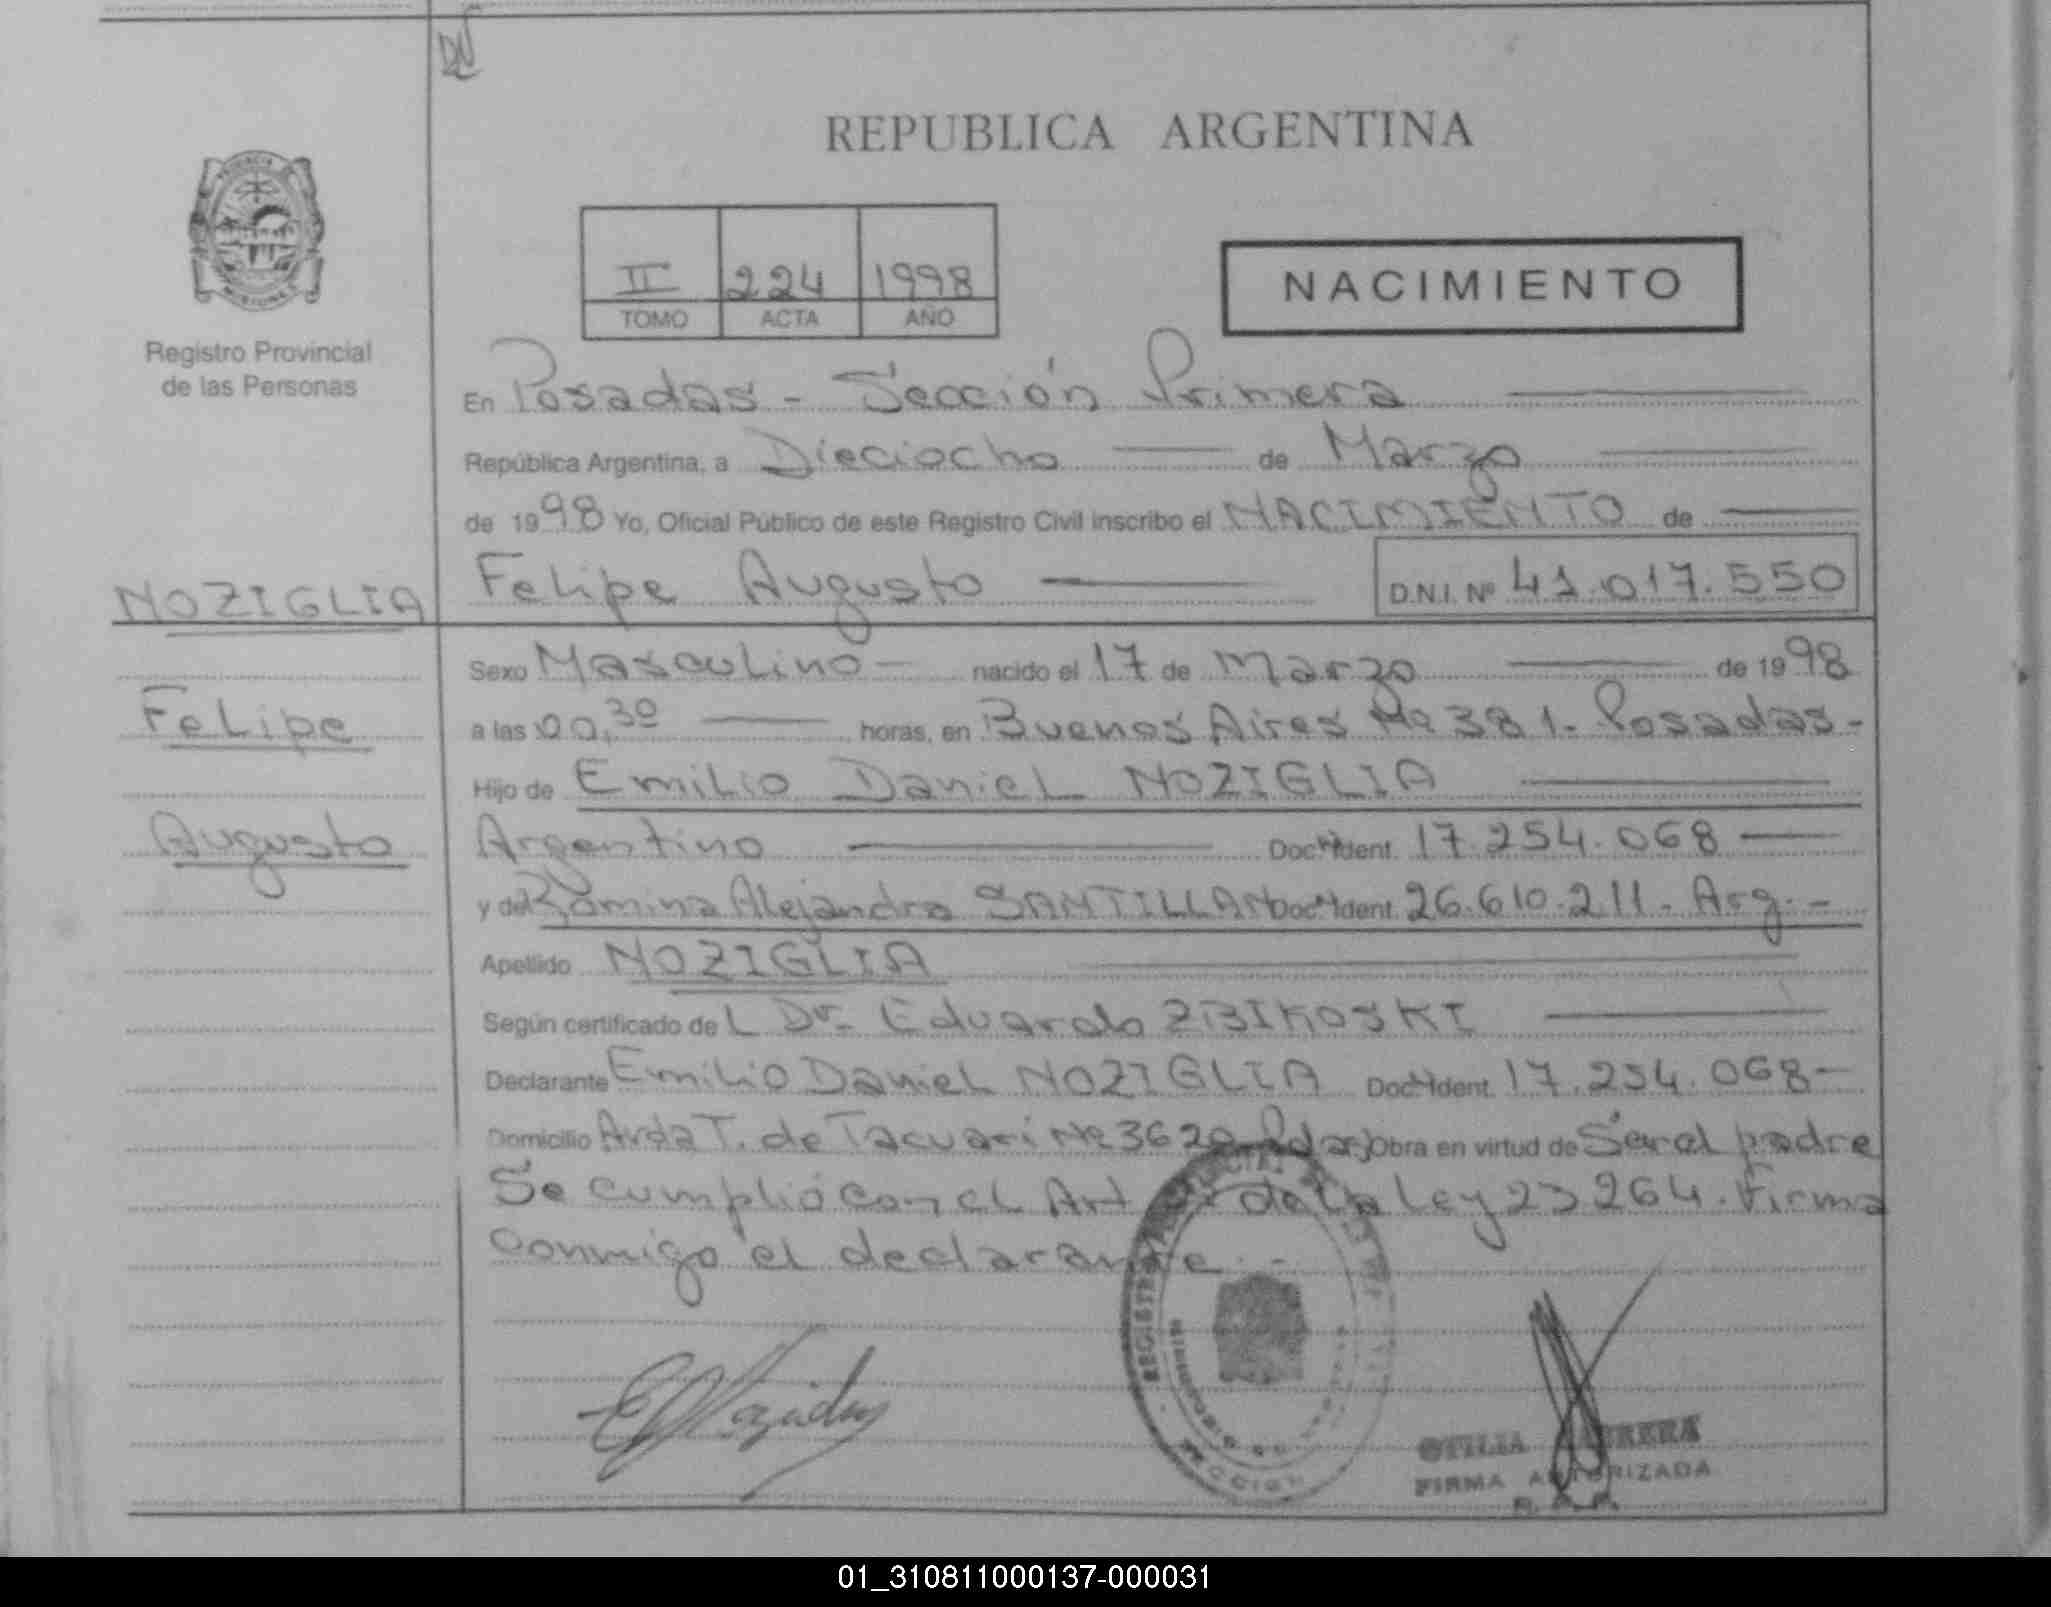 DN
REPUBLICA ARGENTINA
II 224 1998
TOMO ACTA AÑO
NACIMIENTO
Registro Provincial
de las Personas
En Posadas - Sección Primera
República Argentina, a Dieciocho de Marzo
de 1998 Yo, Oficial Público de este Registro Civil inscribo el NACIMIENTO de
NOZIGLIA Felipe Augusto D.N.I. Nº 41.017.550
Sexo Masculino - nacido el 17 de Marzo de 1998
Felipe a las 00,30 horas, en Buenos Aires Nº 381 - Posadas -
Hijo de Emilio Daniel NOZIGLIA
Augusto Argentino Doc. Ident. 17.254.068
y de Romina Alejandra SANTILLAN Doc. Ident. 26.610.211 - Arg. -
Apellido NOZIGLIA
Según certificado del Dr. Eduardo ZBIKOSKI
Declarante Emilio Daniel NOZIGLIA Doc. Ident. 17.254.068 -
Domicilio Avda T. de Tacuarí Nº 3620 Pdas) Obra en virtud de Ser el padre
Se cumplió con el Art de la Ley 23264. Firma
conmigo el declarante. -
OTILIA
FIRMA AUTORIZADA
01_310811000137-000031